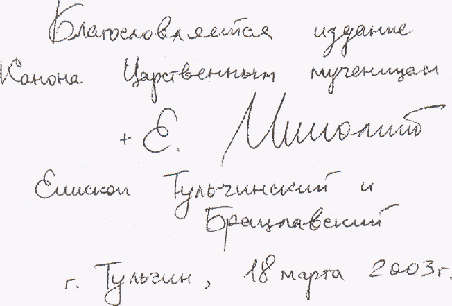 Благословляется издание
Канона Царственным мученицам
+ Е. Ипполит
Епископ Тульчинский и
Брацлавский
г. Тульчин, 18 марта 2003г.